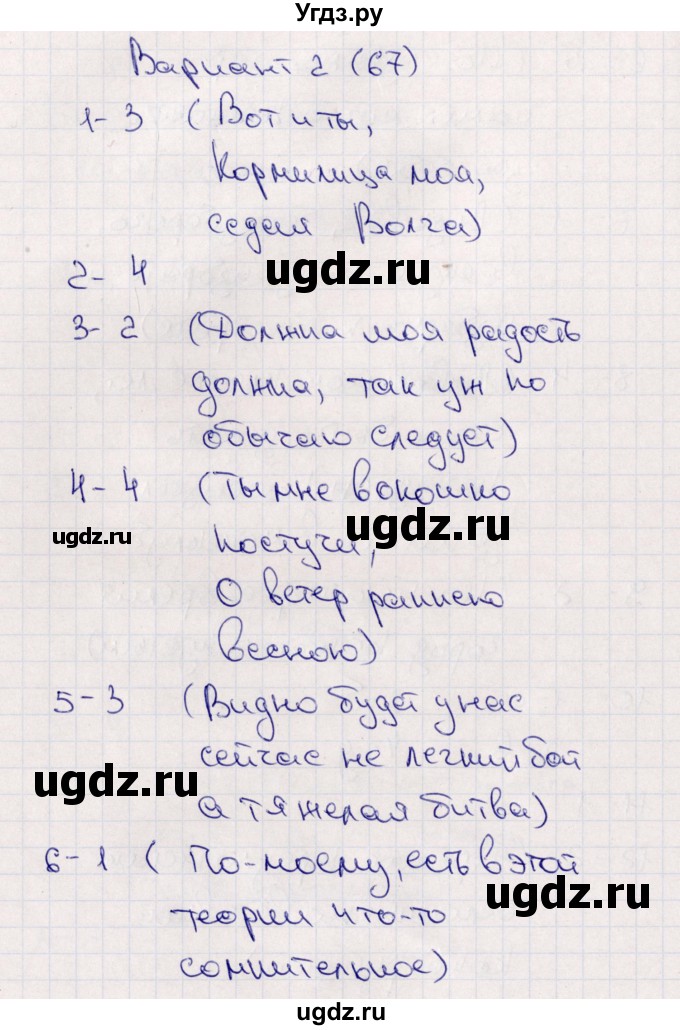 Угдз.ру
Вариант 2 (67)
1-3 (Вот и ты,
Кормилица моя,
седая Волга)
ugdz.ru
2-4
3-2 (Должна моя радость
должна, так уж по
обычаю следует)
4-4 (Ты мне в окошко
ugdz.ru
ugdz.ru
постучи,
О ветер раннею
весною)
5-3 (Видно будет у нас
сейчас не легкий бой
ugdz.ru
а тяжелая битва)
6-1 (По-моему, есть в этой
ugdz.ru
теории что-то
сомнительное)
ugdz.ru